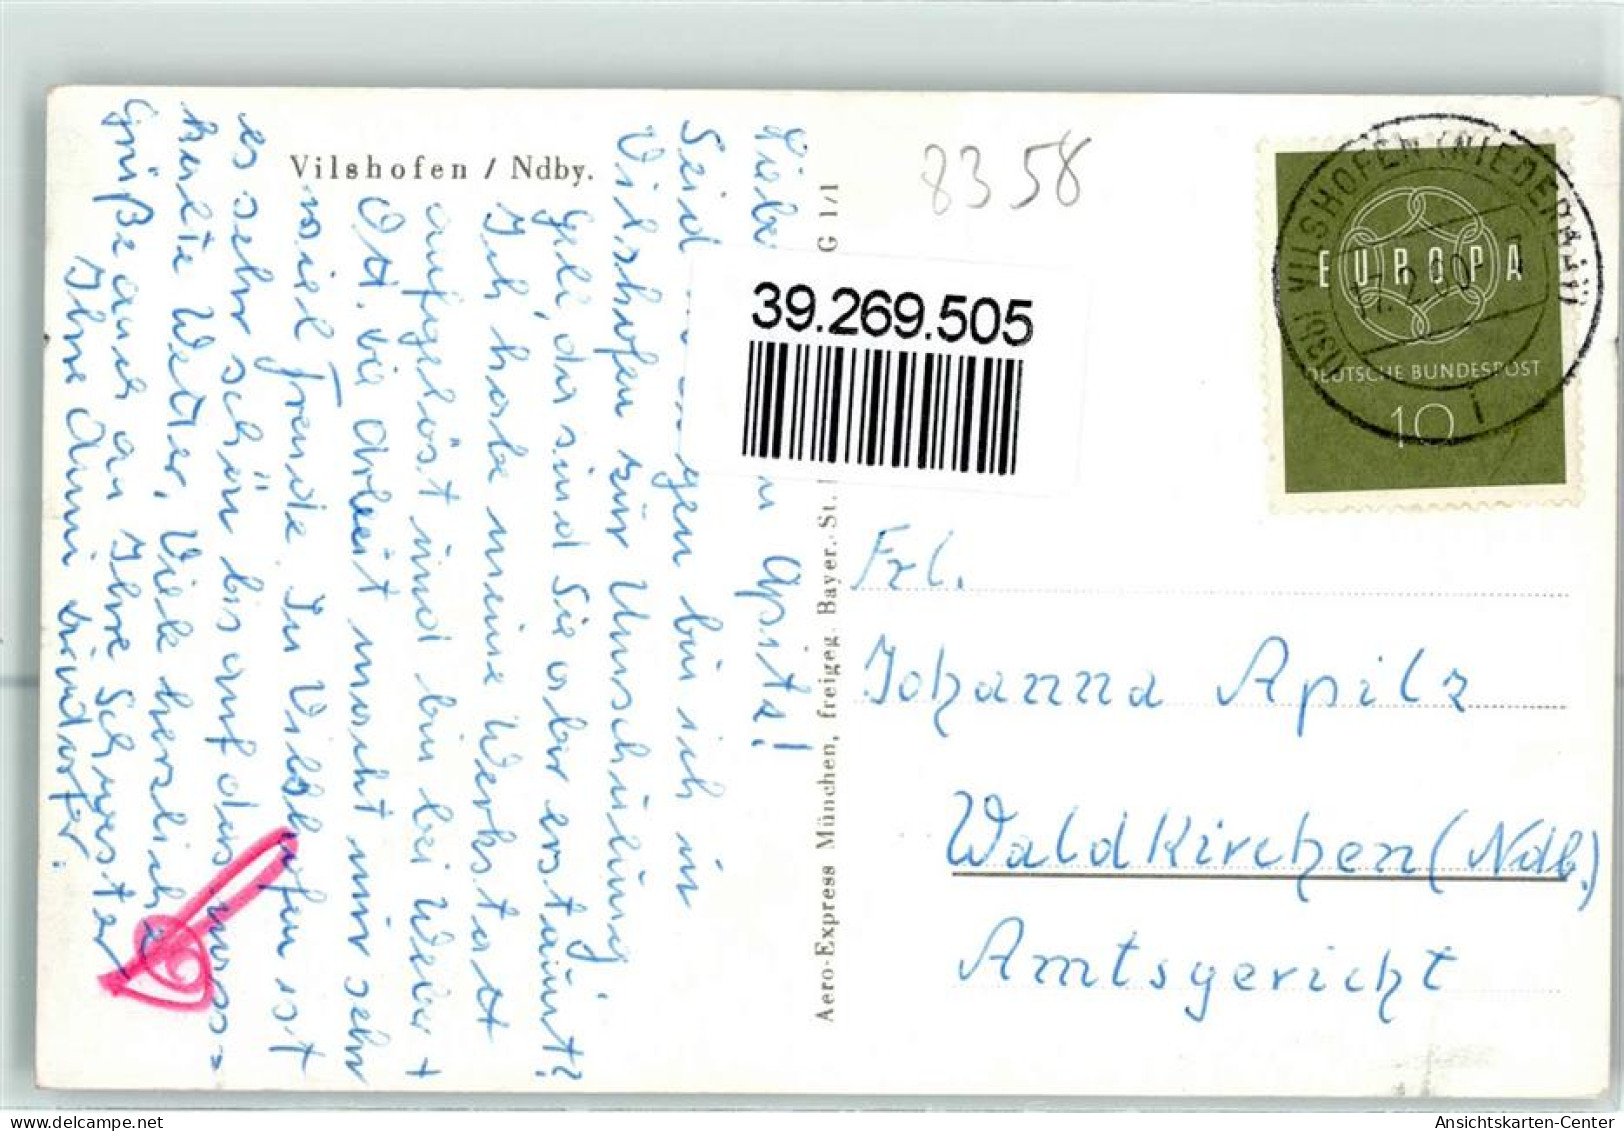 Vilshofen / Ndby.
8358
EUROPA
DEUTSCHE BUNDESPOST
10
(13b) VILSHOFEN (NIEDERBAY)
39.269.505
Aero-Express München, freigeg. Bayer. St.
G 1/1
Frl.
Johanna Apilz
Waldkirchen (Ndb.)
Amtsgericht
Liebe
Seid bin ich in
Vilshofen zur Umschulung.
Gell, da sind Sie aber erstaunt?
Ich habe meine Werkstatt
aufgelöst und bin bei Weber +
Ott. Die Arbeit macht mir sehr
viel Freude. In Vilshofen ist
es sehr schön bis auf das nass=
kalte Wetter. Viele herzliche
Grüße auch an Ihre Schwester
Ihre Anni
Ansichtskarten-Center